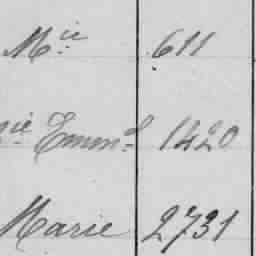 Mie 611
nie Emml 1420
Marie 2731